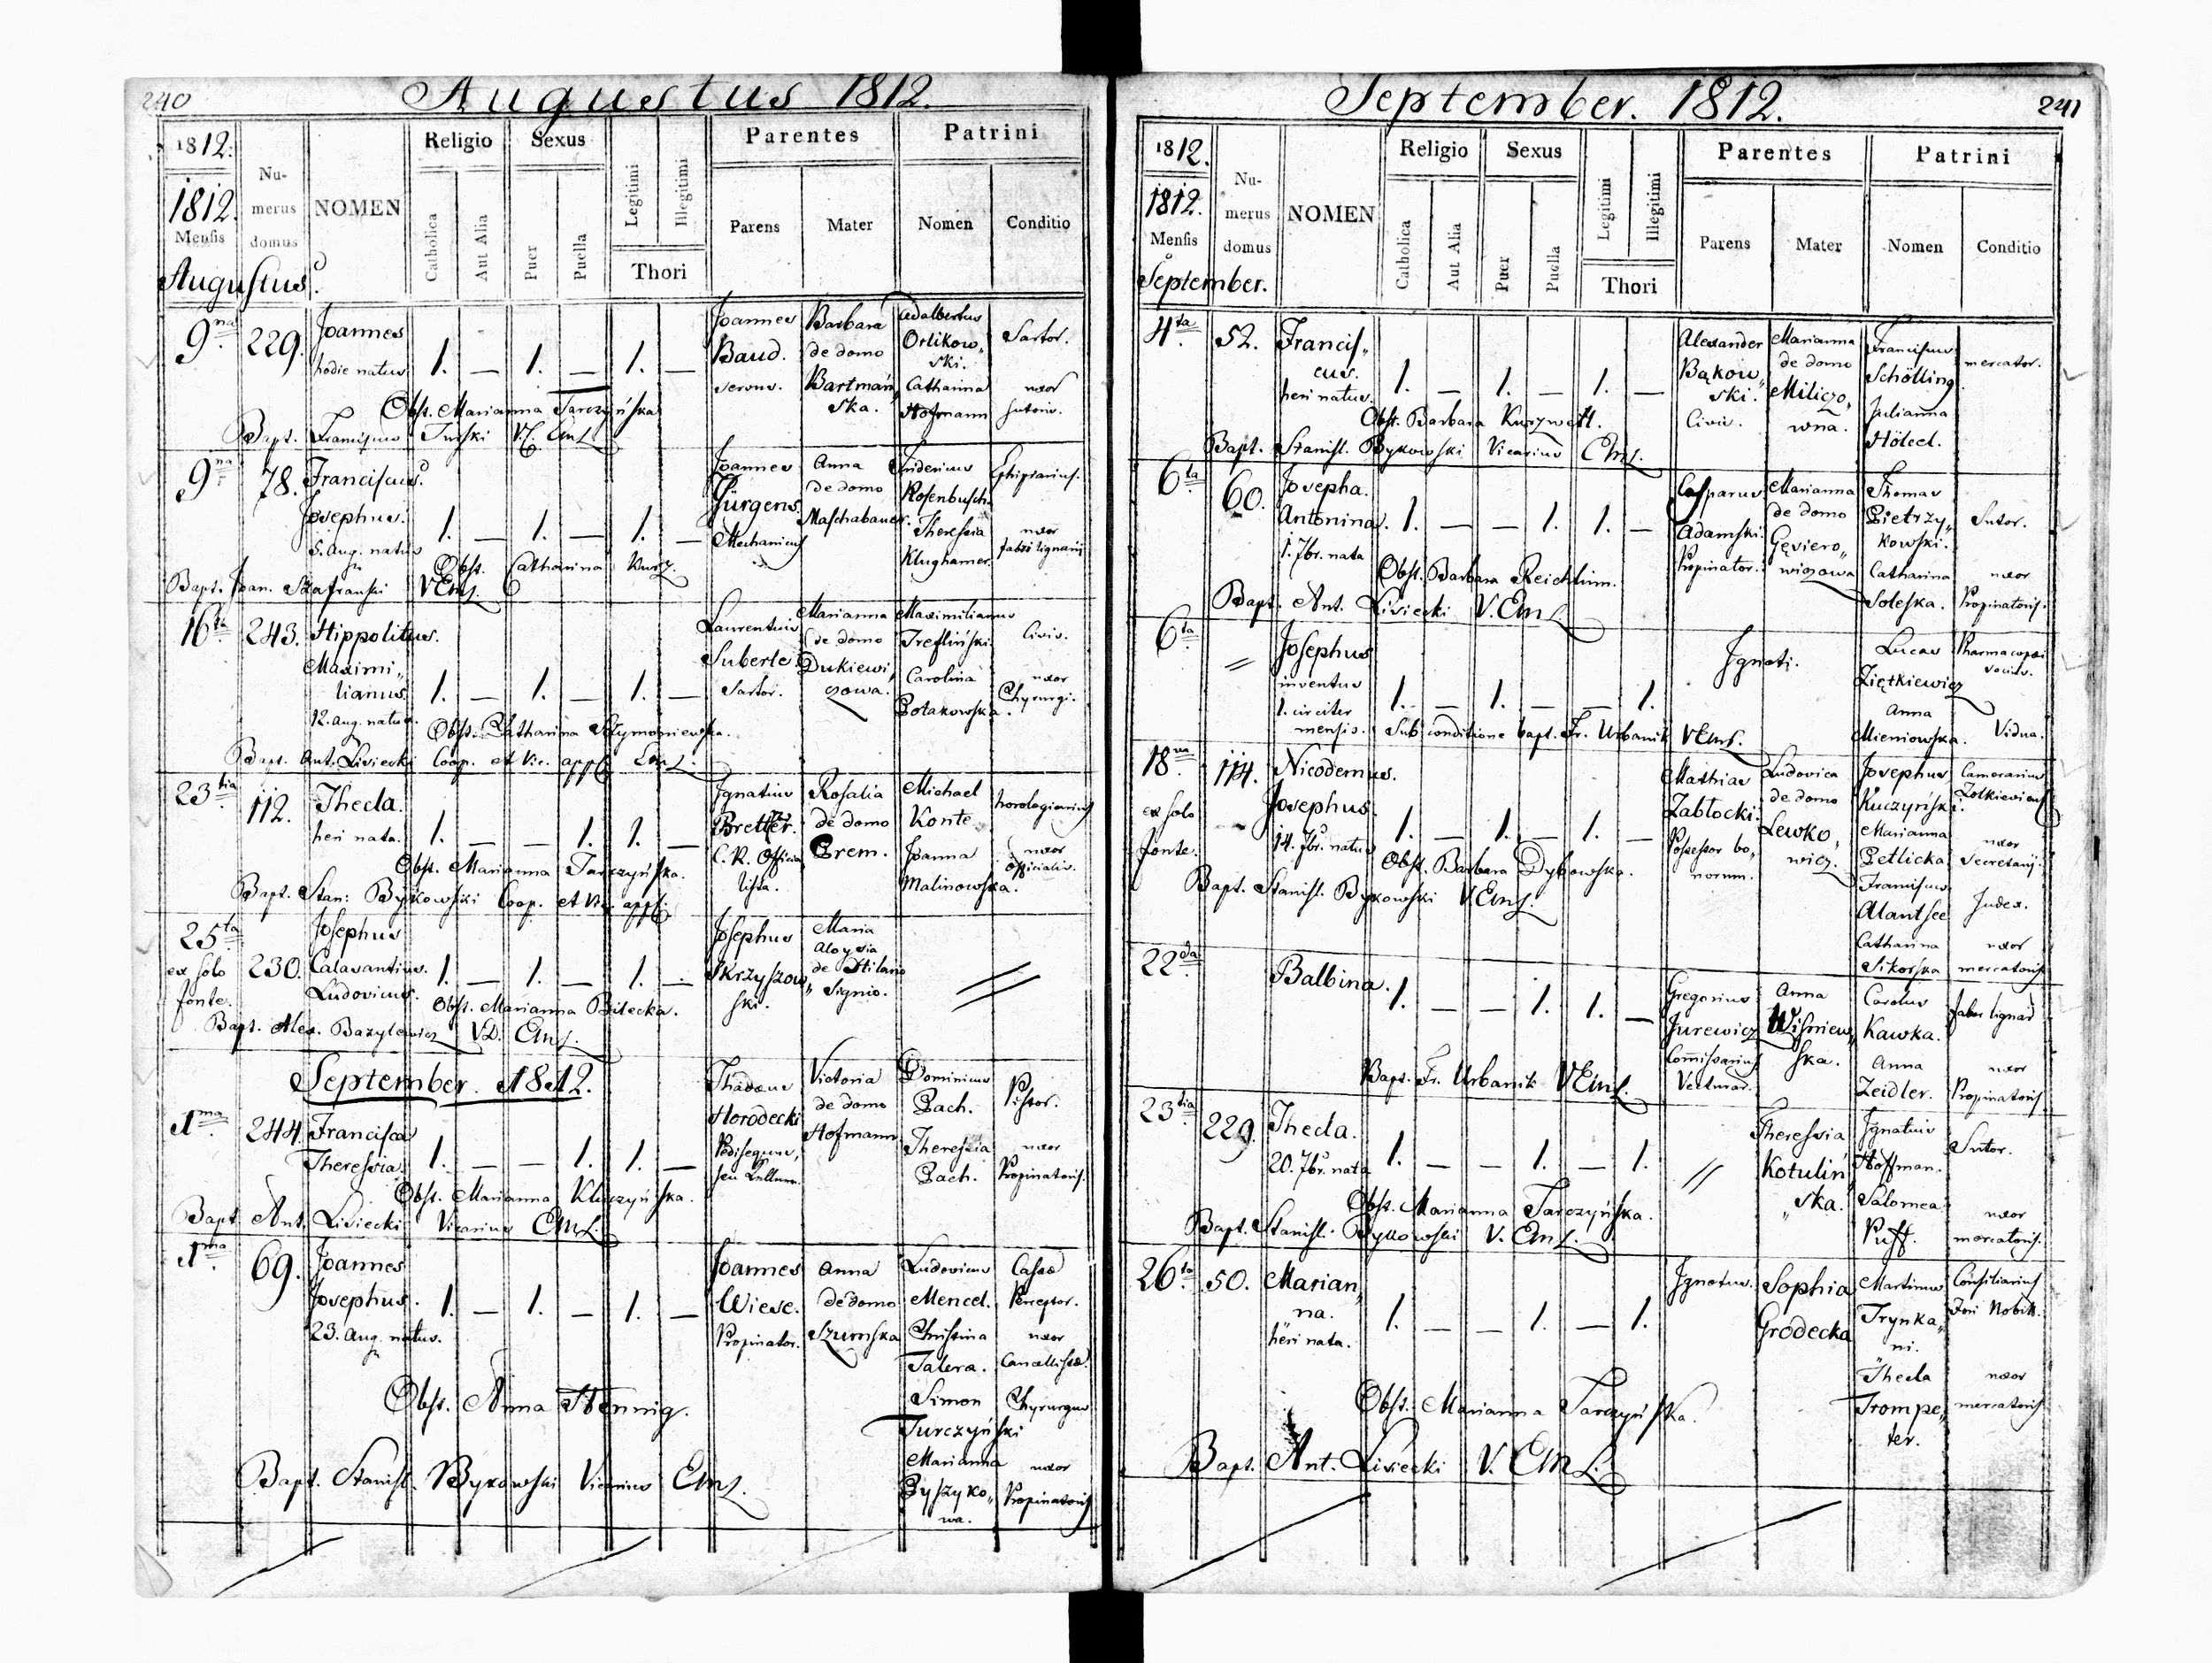 240
Augustus 1812.
1812.
1812.
Mensis
Augustus
Numerus domus
NOMEN
Religio
Catholica
Aut Alia
Sexus
Puer
Puella
Legitimi
Illegitimi
Thori
Parentes
Parens
Mater
Patrini
Nomen
Conditio
9na 229. Joannes hodie natus 1. — 1. — 1. —
Joannes Baud.
Barbara de domo Bartmań„ ska.
Adalbertus Orlikow„ ski. Sartor.
Catharina Hofmann uxor Sutoris.
Obst. Marianna Tarczyńska
Bapt. Franciscus Turski
9na 78. Franciscus Josephus. 5. Aug. natus 1. — 1. — 1. —
Joannes Jürgens Mechanicus
Anna de domo Maschabauer.
Fridericus Rosenbusch Ephipiarius.
Theressia Klughamer uxor fabri lignarii
Obst. Catharina Kurz.
Bapt. Joan. Szafranski VEms.
16ta 243. Hippolitus. Maximi„ lianus. 12. Aug. natus. 1. — 1. — 1. —
Laurentius Suberle. Sartor.
Marianna de domo Dukiewi„ czowa.
Maximilianus Trefliński. Civis.
Carolina Potakowska. uxor Chyrurgi.
Obst. Catharina Szymoniewska.
Bapt. Ant. Lisiecki Coop. et Vic. appl. Ems.
23tia 112. Thecla. heri nata. 1. — — 1. 1. —
Ignatius Bretter. C. R. Officia„ lista.
Rosalia de domo Prem.
Michael Konte horologiarius
Joanna Malinowska. uxor officialis.
Obst. Marianna Tarczyńska.
Bapt. Stan: Bykowski Coop. et Vic. appl.
25ta ex solo fonte. 230. Josephus Calasantius. Ludovicus. 1. — 1. — 1. —
Josephus Skrzyszow„ ski.
Maria Aloysia de Stilano Signio.
Obst. Marianna Bilecka.
Bapt. Alex. Bazylewicz VD. Ems.
September. 1812.
1ma 244. Francisca Theressia. 1. — — 1. 1. —
Thadaeus Horodecki Pedisequus, seu Kellner.
Victoria de domo Hofmann
Dominicus Pach. Pistor.
Theressia Pach. uxor Propinatoris.
Obst. Marianna Kluczyńska.
Bapt. Ant. Lisiecki Vicarius Ems.
1ma 69. Joannes Josephus. 23. Aug. natus. 1. — 1. — 1. —
Joannes Wiese. Propinator.
Anna de domo Szumska
Ludovicus Mencel. Cassae Perceptor.
Christina Talera. uxor Cancellistae.
Simon Turczyński Chyrurgus
Marianna Pyszyko„ wa. uxor Propinatoris
Obst. Anna Hennig.
Bapt. Stanisl. Bykowski Vicarius Ems.
241
September. 1812.
1812.
1812.
Mensis
September.
Numerus domus
NOMEN
Religio
Catholica
Aut Alia
Sexus
Puer
Puella
Legitimi
Illegitimi
Thori
Parentes
Parens
Mater
Patrini
Nomen
Conditio
4ta 52. Francis„ cus. heri natus. 1. — 1. — 1. —
Alexander Bąkow„ ski. Civis.
Marianna de domo Miliczo„ wna.
Franciscus Schölling mercator.
Julianna Hölcel.
Obst. Barbara Kurzweil.
Bapt. Stanisl. Bykowski Vicarius Ems.
6ta 60. Josepha. Antonina. 1. 7br. nata 1. — — 1. 1. —
Casparus Adamski. Propinator.
Marianna de domo Gęsiero„ wiczowa
Thomas Pietrzy„ kowski. Sutor.
Catharina Soleska. uxor Propinatoris.
Obst. Barbara Reichlim.
Bapt. Ant. Lisiecki V. Ems.
6ta = Josephus inventus 1. circiter mensis. 1. — 1. — — 1.
Ignoti.
Lucas Ziętkiewicz Pharmacopaei socius.
Anna Mieniowska. Vidua.
Sub conditione bapt. Fr. Urbanik VEms.
18va ex solo fonte. 114. Nicodemus. Josephus. 14. 7br. natus 1. — 1. — 1. —
Mathias Zabłocki. Possessor bo„ norum.
Ludovica de domo Lewko„ wicz.
Josephus Kuczyński. Camerarius Zolkieviens.
Marianna Petlicka uxor Secretarii.
Franciscus Alantsee Judex.
Catharina Sikorska uxor mercatoris
Obst. Barbara Dybowska.
Bapt. Stanisl. Bykowski V.Ems.
22da Balbina. 1. — — 1. 1. —
Gregorius Jurewicz Commissarius Vecturar.
Anna Wiśniew„ ska.
Carolus Kawka. faber lignar
Anna Zeidler. uxor Propinatoris
Bapt. Fr. Urbanik VEms.
23tia 229. Thecla. 20. 7br. nata 1. — — 1. — 1.
=
Theressia Kotuliń„ ska.
Ignatius Hoffman. Sutor.
Salomea Puff. uxor mercatoris.
Obst. Marianna Tarczyńska.
Bapt. Stanisl. Bykowski V. Ems.
26ta 50. Marian„ na. heri nata. 1. — — 1. — 1.
Ignotus.
Sophia Grodecka
Martinus Trynka„ ni. Consiliarius Fori Nobil.
Thecla Trompe„ ter. uxor mercatoris
Obst. Marianna Tarczyńska.
Bapt. Ant. Lisiecki V. Ems.